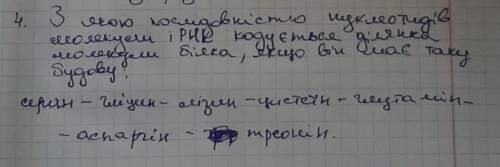 4. З якою послідовністю нуклеотидів
молекули іРНК кодується ділянка
молекули білка, якщо він має таку
будову?
серин - гліцин - лізин - цистеїн - глутамін -
- аспаргін - треонін.